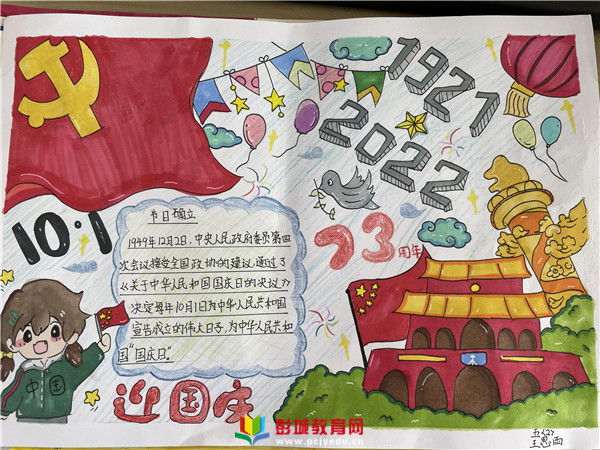 1921
2022
10·1
节日确立
1949年12月2日，中央人民政府委员第四
次会议接受全国政协的建议，通过了
《关于中华人民共和国国庆日的决议》
决定每年10月1日为中华人民共和国
宣告成立的伟大日子，为中华人民共和
国“国庆日”
73周年
中国
迎国庆
彭城教育网
www.pcjyedu.cn
五(2)
王思雨